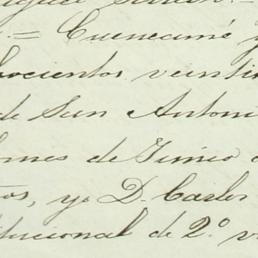 = Cuencamé y
ocientos veinti
de San Antoni
omes de Junio
os, yo D. Carlos
titucional de 2.º v